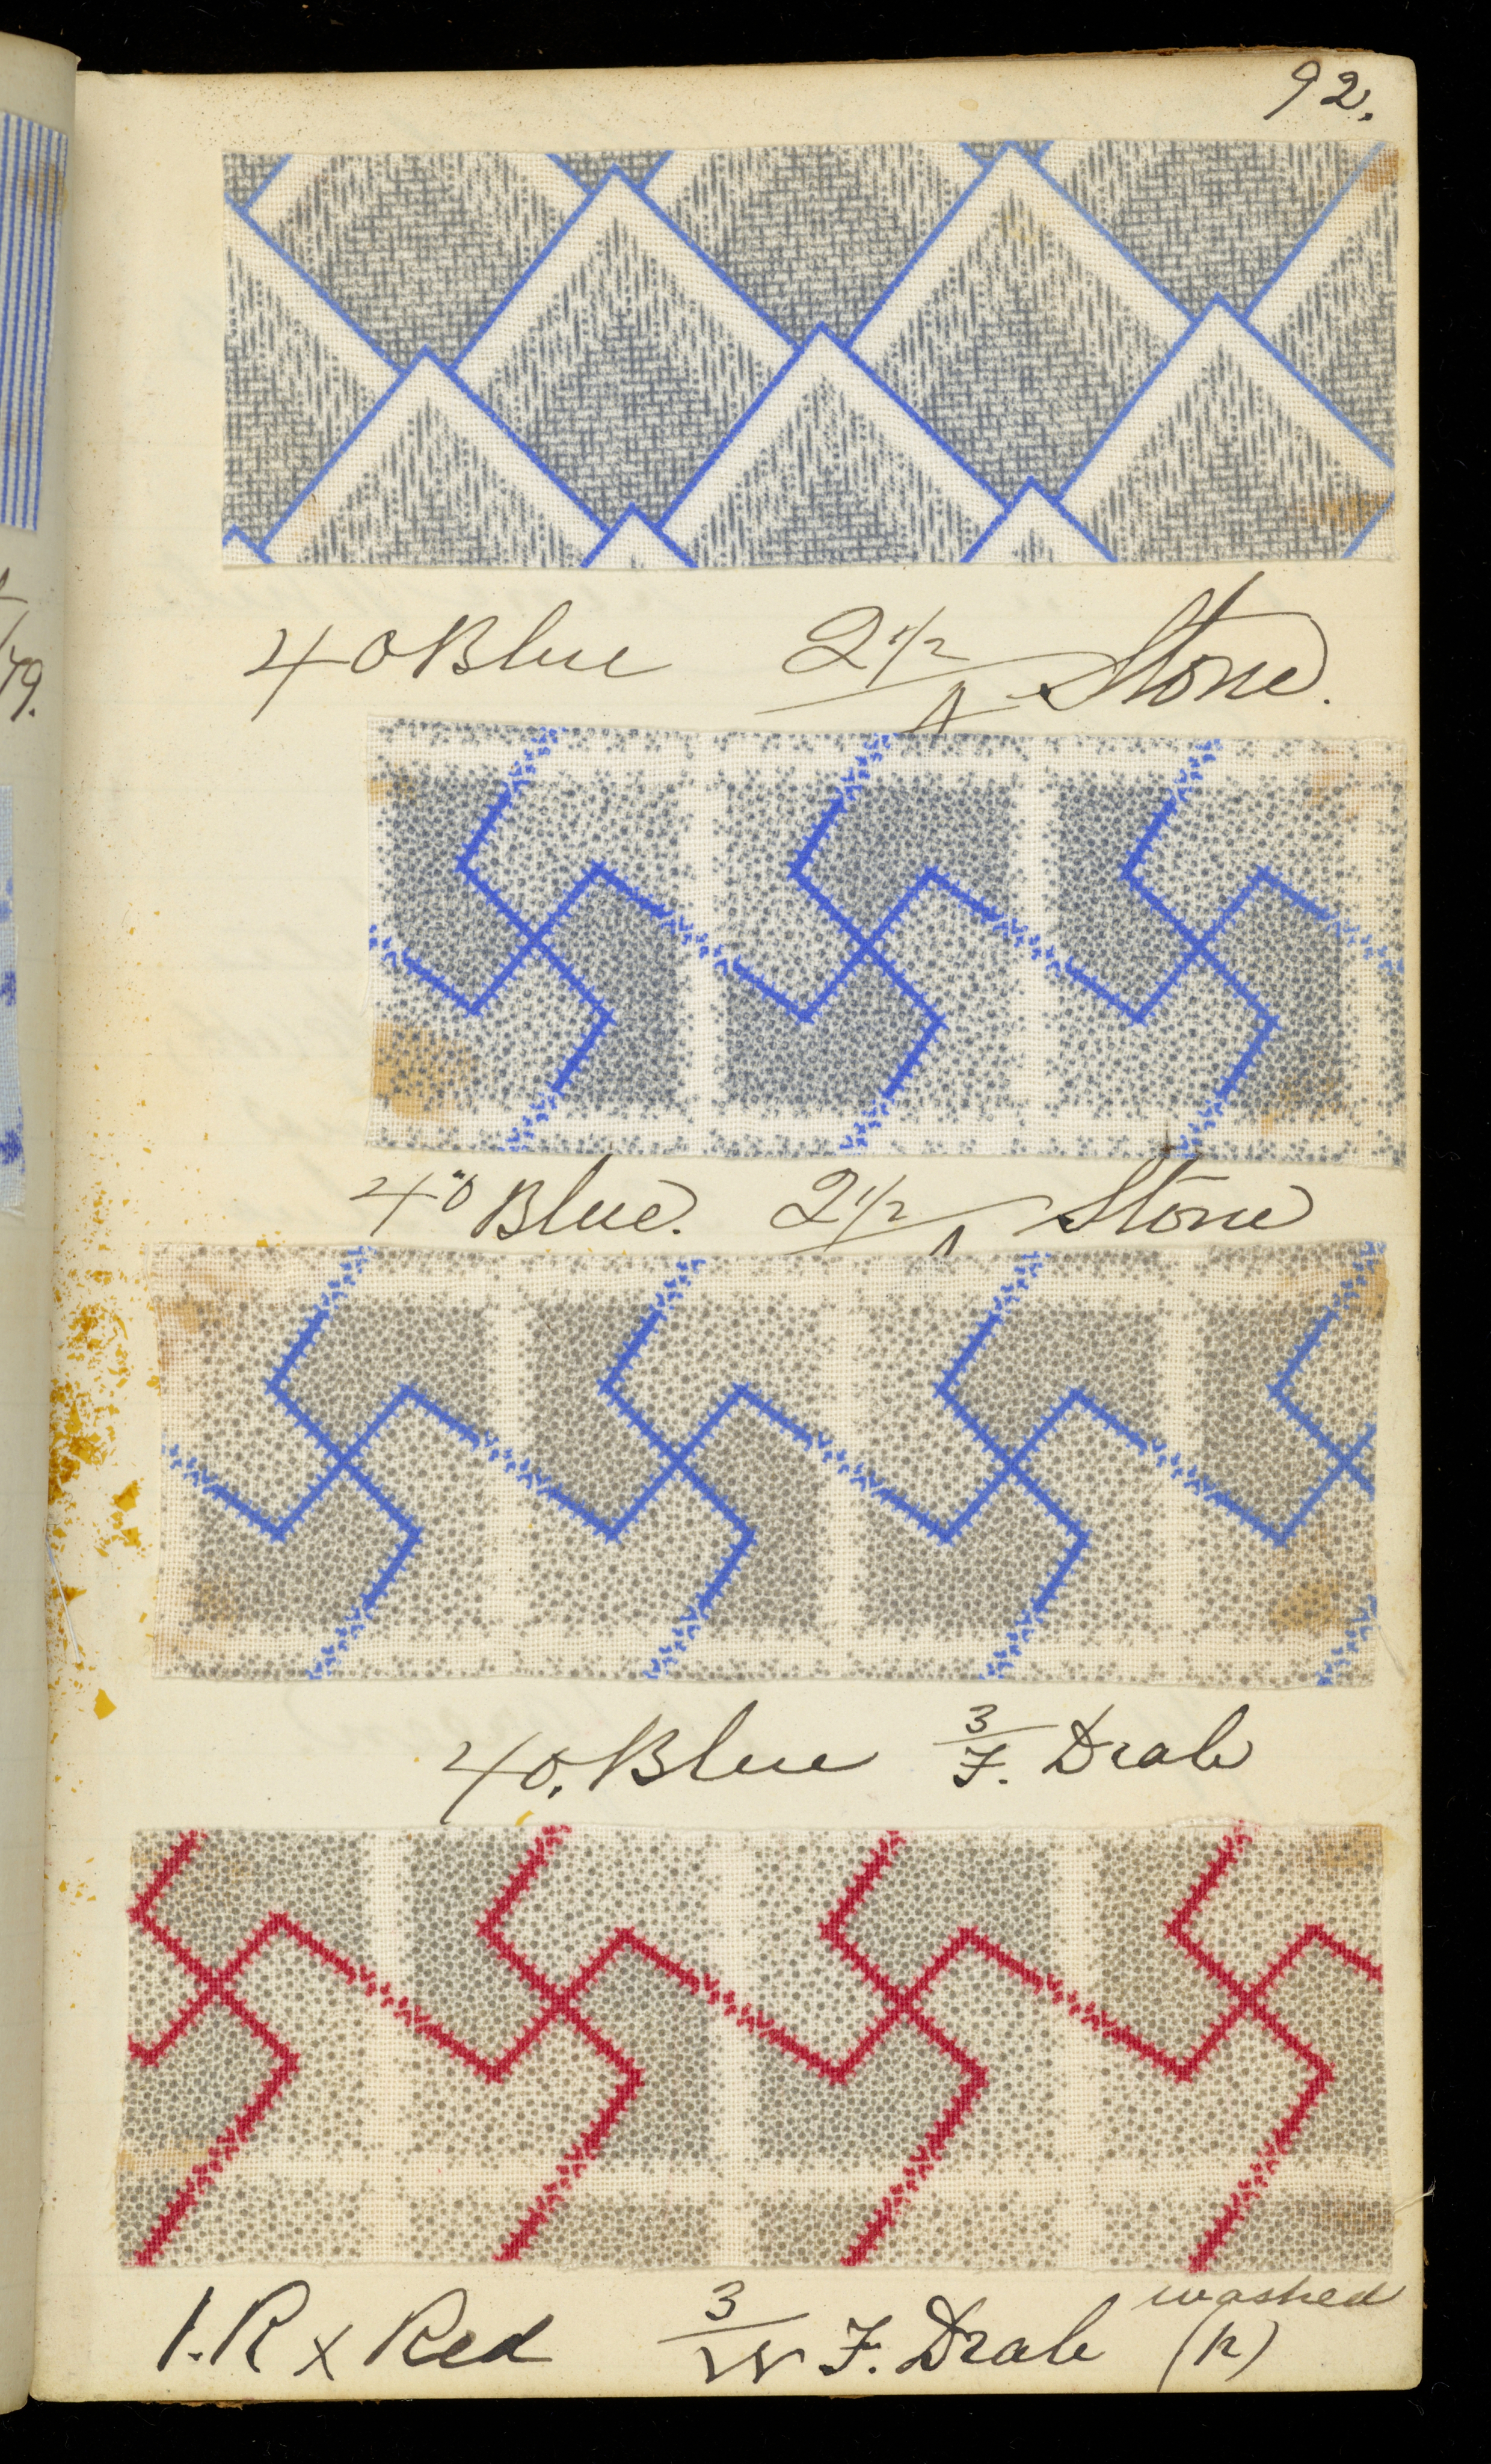 92.
79.
40 Blue 2 1/2 / A Stone.
40 Blue. 2 1/2 / A Stone
40. Blue 3/F. Drab
washed
1. R x Red 3/W F. Drab (R)